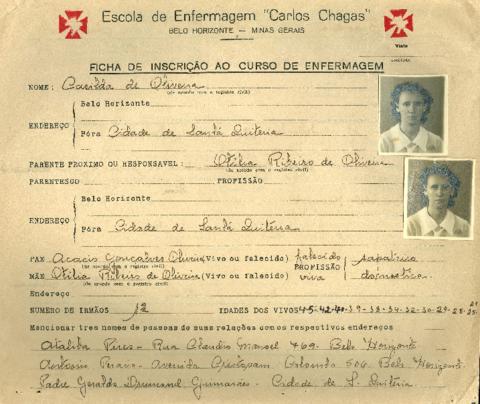 Escola de Enfermagem "Carlos Chagas"
BELO HORIZONTE — MINAS GERAIS
Visto
FICHA DE INSCRIÇÃO AO CURSO DE ENFERMAGEM
NOME: de Oliveira
(de acordo com o registro civil)
Belo Horizonte
ENDEREÇO
Fóra Cidade de Santa Quiteria
PARENTE PROXIMO OU RESPONSAVEL: Otilia Ribeiro de Oliveira
(de acôrdo com o registro civil)
PARENTESCO PROFISSÃO
Belo Horizonte
ENDEREÇO
Fóra Cidade de Santa Quiteria
PAE Acacio Gonçalves Oliveira (Vivo ou falecido) falecido sapateiro
(de acordo com o registro civil) PROFISSÃO
MÃE Otilia Ribeiro de Oliveira (Vivo ou falecido) viva domestica
(de acordo com o registro civil)
Endereço
NUMERO DE IRMÃOS 12 IDADES DOS VIVOS 45-42-40-39-38-34-32-30-29-28-25-
Mencionar tres nomes de pessoas de suas relações com os respectivos endereços
Atalita Pires - Rua Claudio Manoel 469. Belo Horizonte
Antonio - Avenida Cristovam Colombo 506. Belo Horizonte
Padre Geraldo Drumond Guimarães - Cidade de S. Quiteria.